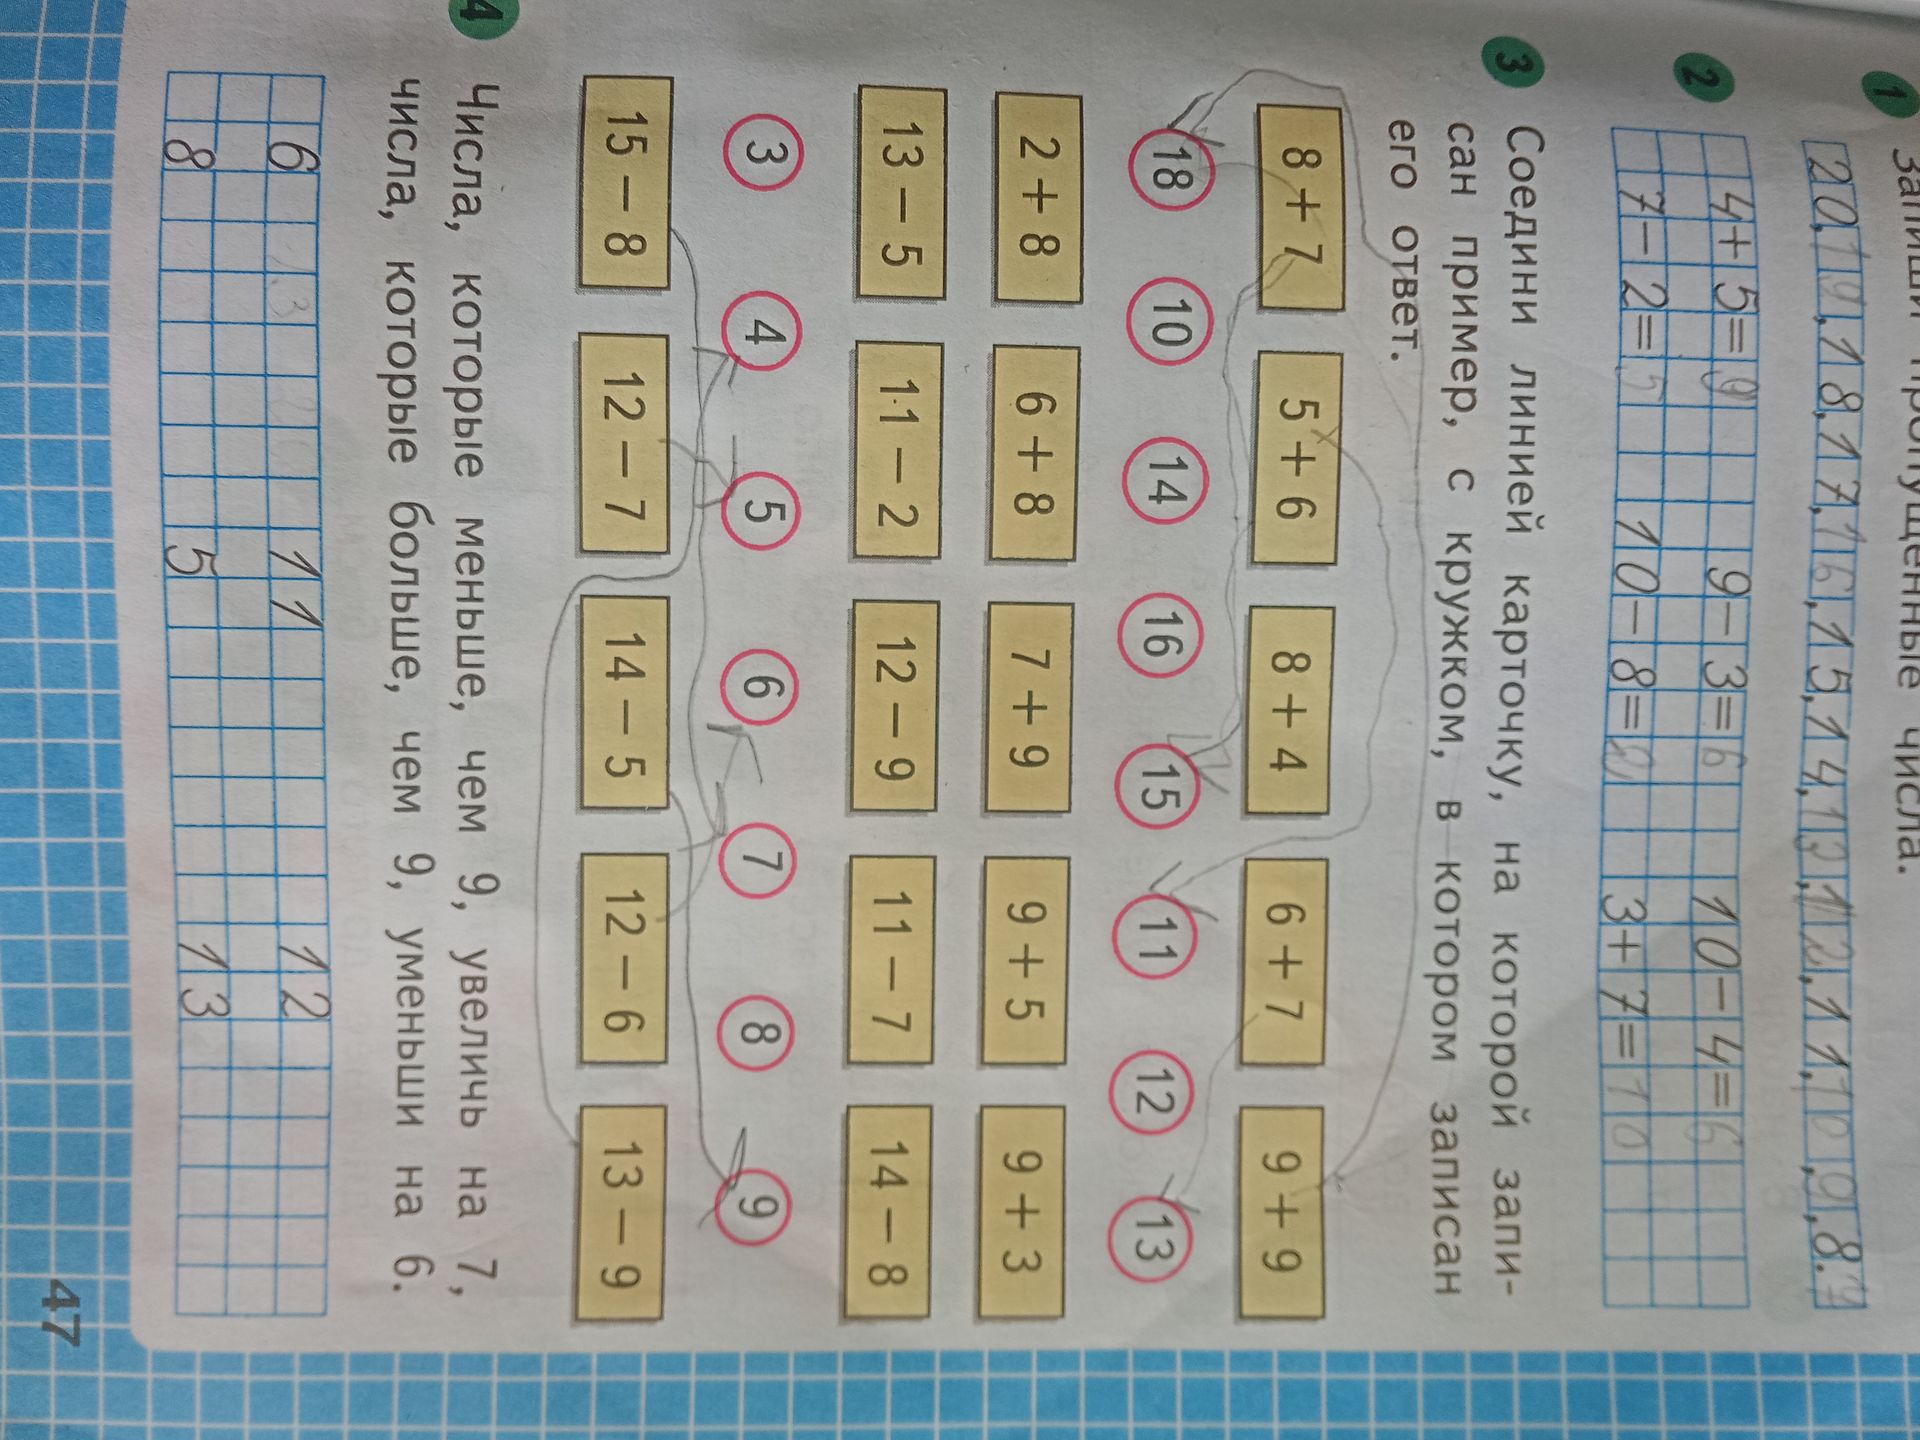 Запиши пропущенные числа.
1
20, 19, 18, 17, 16, 15, 14, 13, 12, 11, 10, 9, 8.
2
4+5=9 9-3=6 10-4=6
7-2=5 10-8=2 3+7=10
3 Соедини линией карточку, на которой запи-
сан пример, с кружком, в котором записан
его ответ.
8 + 7 5 + 6 8 + 4 6 + 7 9 + 9
18 10 14 16 15 11 12 13
2 + 8 6 + 8 7 + 9 9 + 5 9 + 3
13 - 5 11 - 2 12 - 9 11 - 7 14 - 8
3 4 5 6 7 8 9
15 - 8 12 - 7 14 - 5 12 - 6 13 - 9
4 Числа, которые меньше, чем 9, увеличь на 7,
числа, которые больше, чем 9, уменьши на 6.
6 13 11 12
8 5 13
47